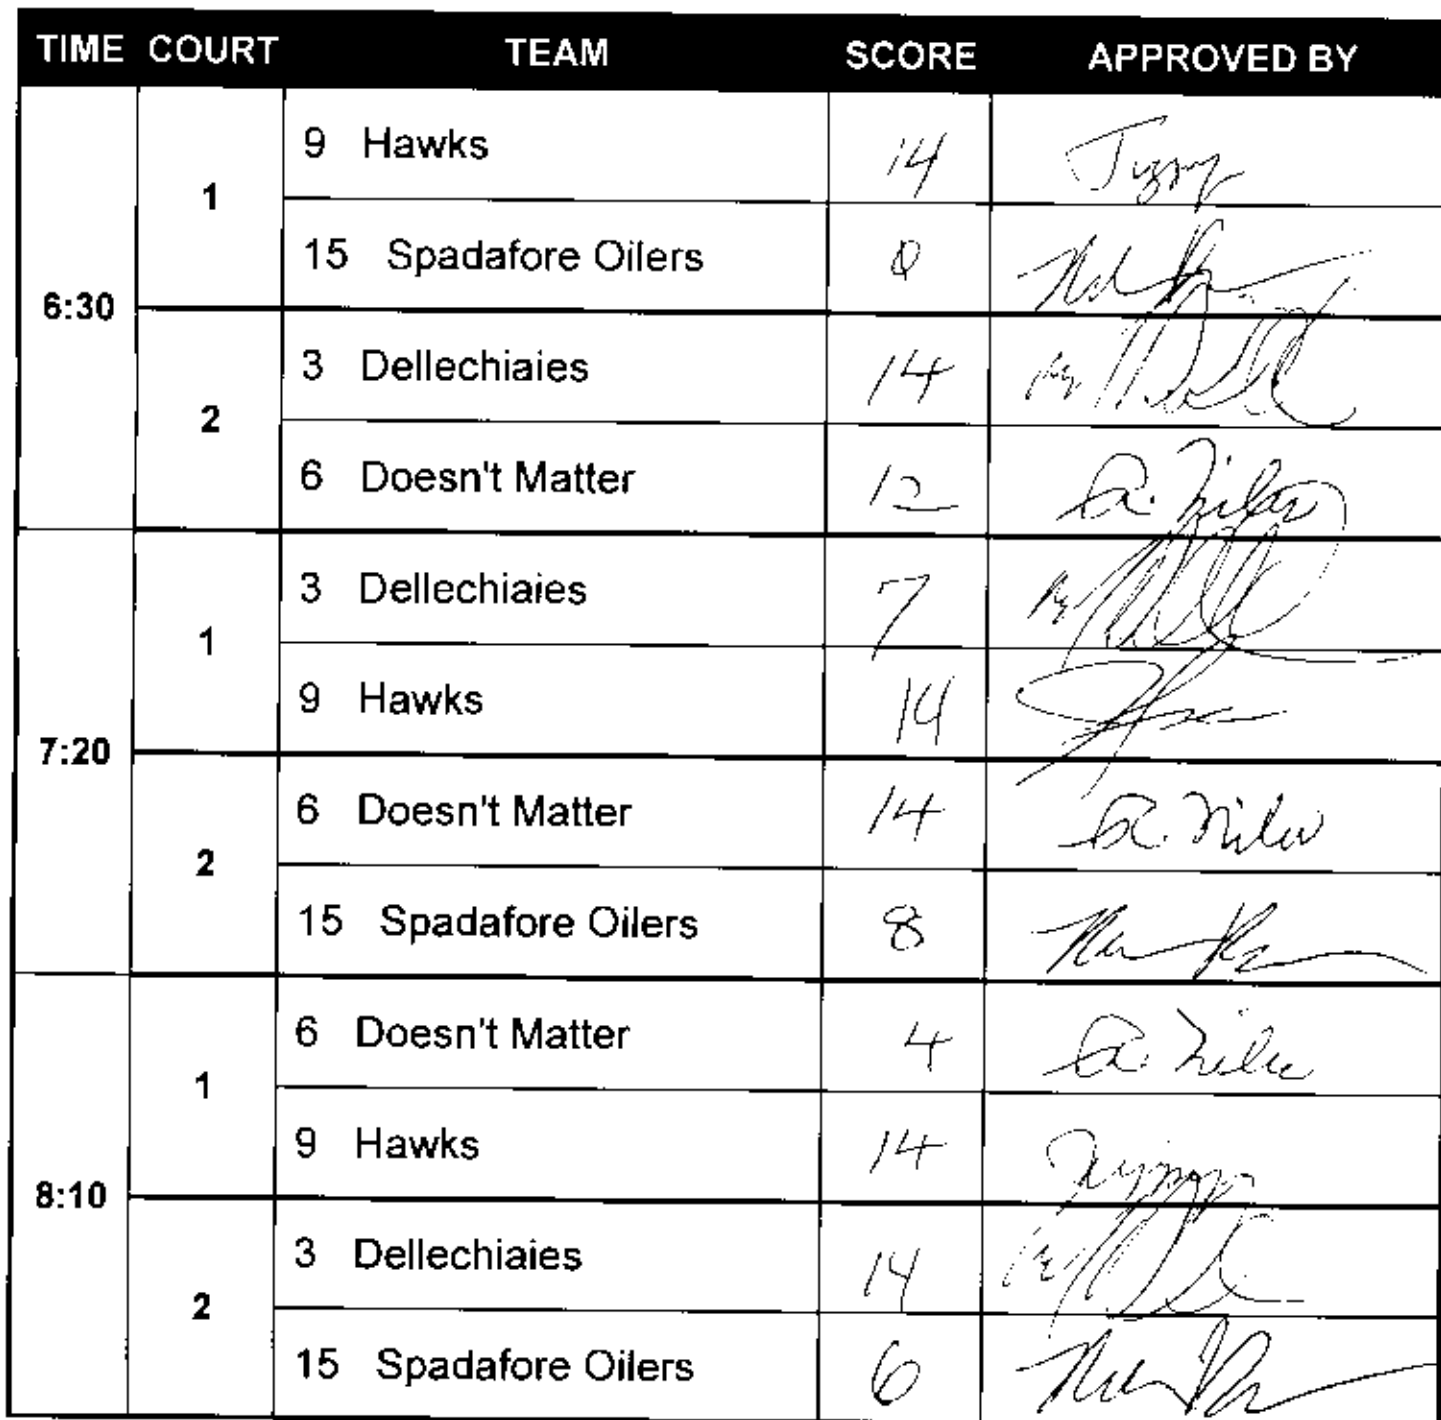 TIME COURT TEAM SCORE APPROVED BY
6:30
1
9 Hawks 14
15 Spadafore Oilers 0
2
3 Dellechiaies 14
6 Doesn't Matter 12
7:20
1
3 Dellechiaies 7
9 Hawks 14
2
6 Doesn't Matter 14
15 Spadafore Oilers 8
8:10
1
6 Doesn't Matter 4
9 Hawks 14
2
3 Dellechiaies 14
15 Spadafore Oilers 6